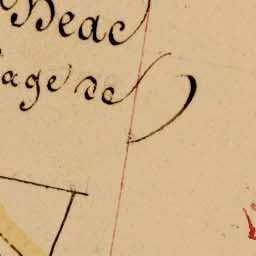 Deac
age de